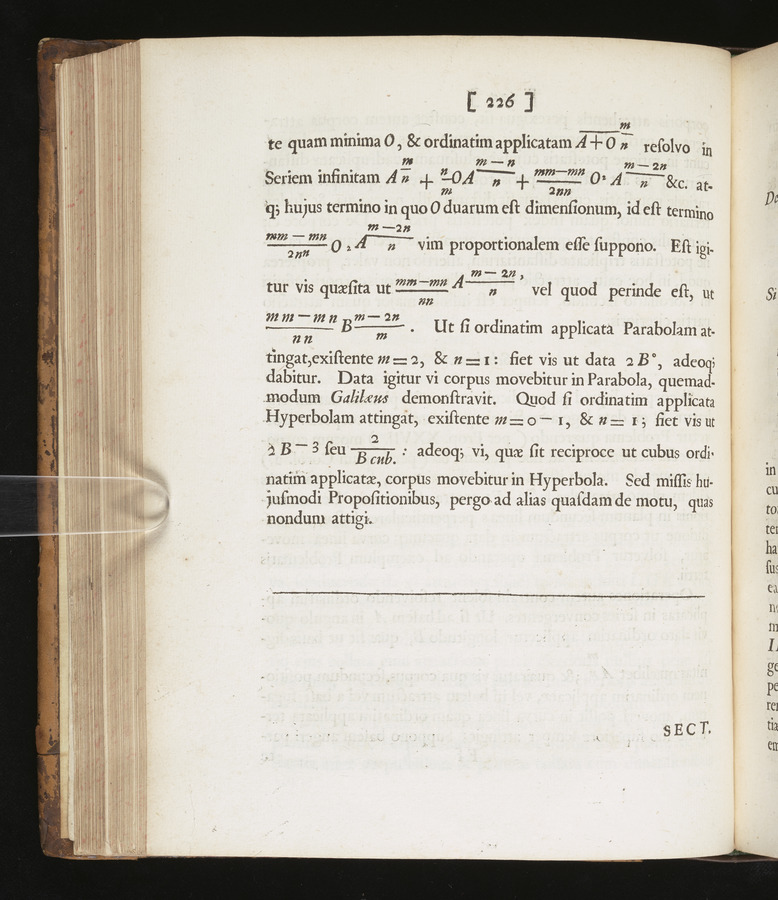 [ 226 ]
te quam minima O, & ordinatim applicatam A+O^(m/n) reſolvo in
Seriem infinitam A^(m/n) + n/m OA^((m—n)/n) + (mm—mn)/(2nn) O² A^((m—2n)/n) &c. at-
q; hujus termino in quo O duarum eſt dimenſionum, id eſt termino
(mm — mn)/(2nn) O 2 A^((m—2n)/n) vim proportionalem eſſe ſuppono. Eſt igi-
tur vis quæſita ut (mm—mn)/(nn) A^((m—2n)/n), vel quod perinde eſt, ut
(mm — mn)/(nn) B^((m—2n)/m). Ut ſi ordinatim applicata Parabolam at-
tingat, exiſtente m = 2, & n = 1: fiet vis ut data 2 B°, adeoq;
dabitur. Data igitur vi corpus movebitur in Parabola, quemad-
modum Galilæus demonſtravit. Quod ſi ordinatim applicata
Hyperbolam attingat, exiſtente m = 0 — 1, & n = 1; fiet vis ut
2 B — 3 ſeu 2/(B cub.) : adeoq; vi, quæ ſit reciproce ut cubus ordi-
natim applicatæ, corpus movebitur in Hyperbola. Sed miſſis hu-
juſmodi Propoſitionibus, pergo ad alias quaſdam de motu, quas
nondum attigi.
SECT.
De
Si
in
cu
to
ter
ha
ſus
ea
m
ge
pe
rer
tia
em